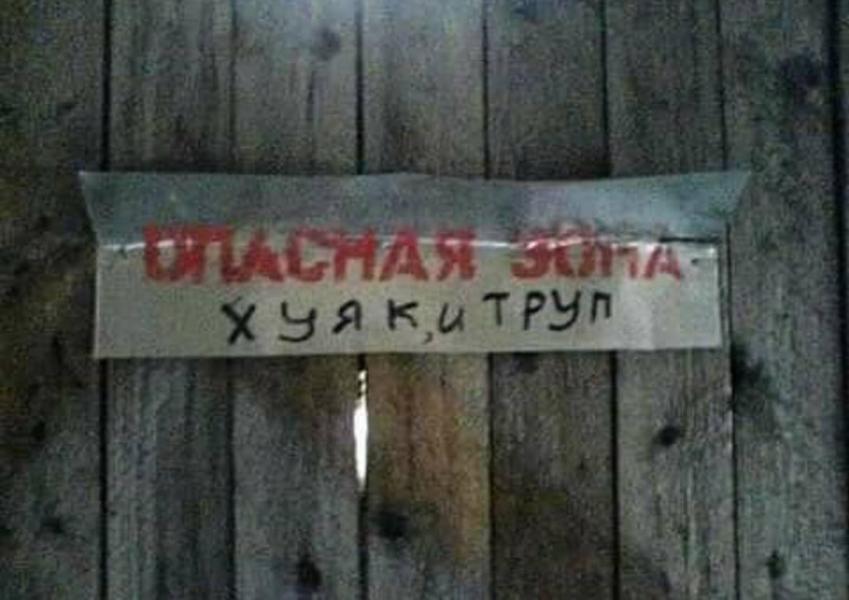 ОПАСНАЯ ЗОНА
ХУЯК, И ТРУП